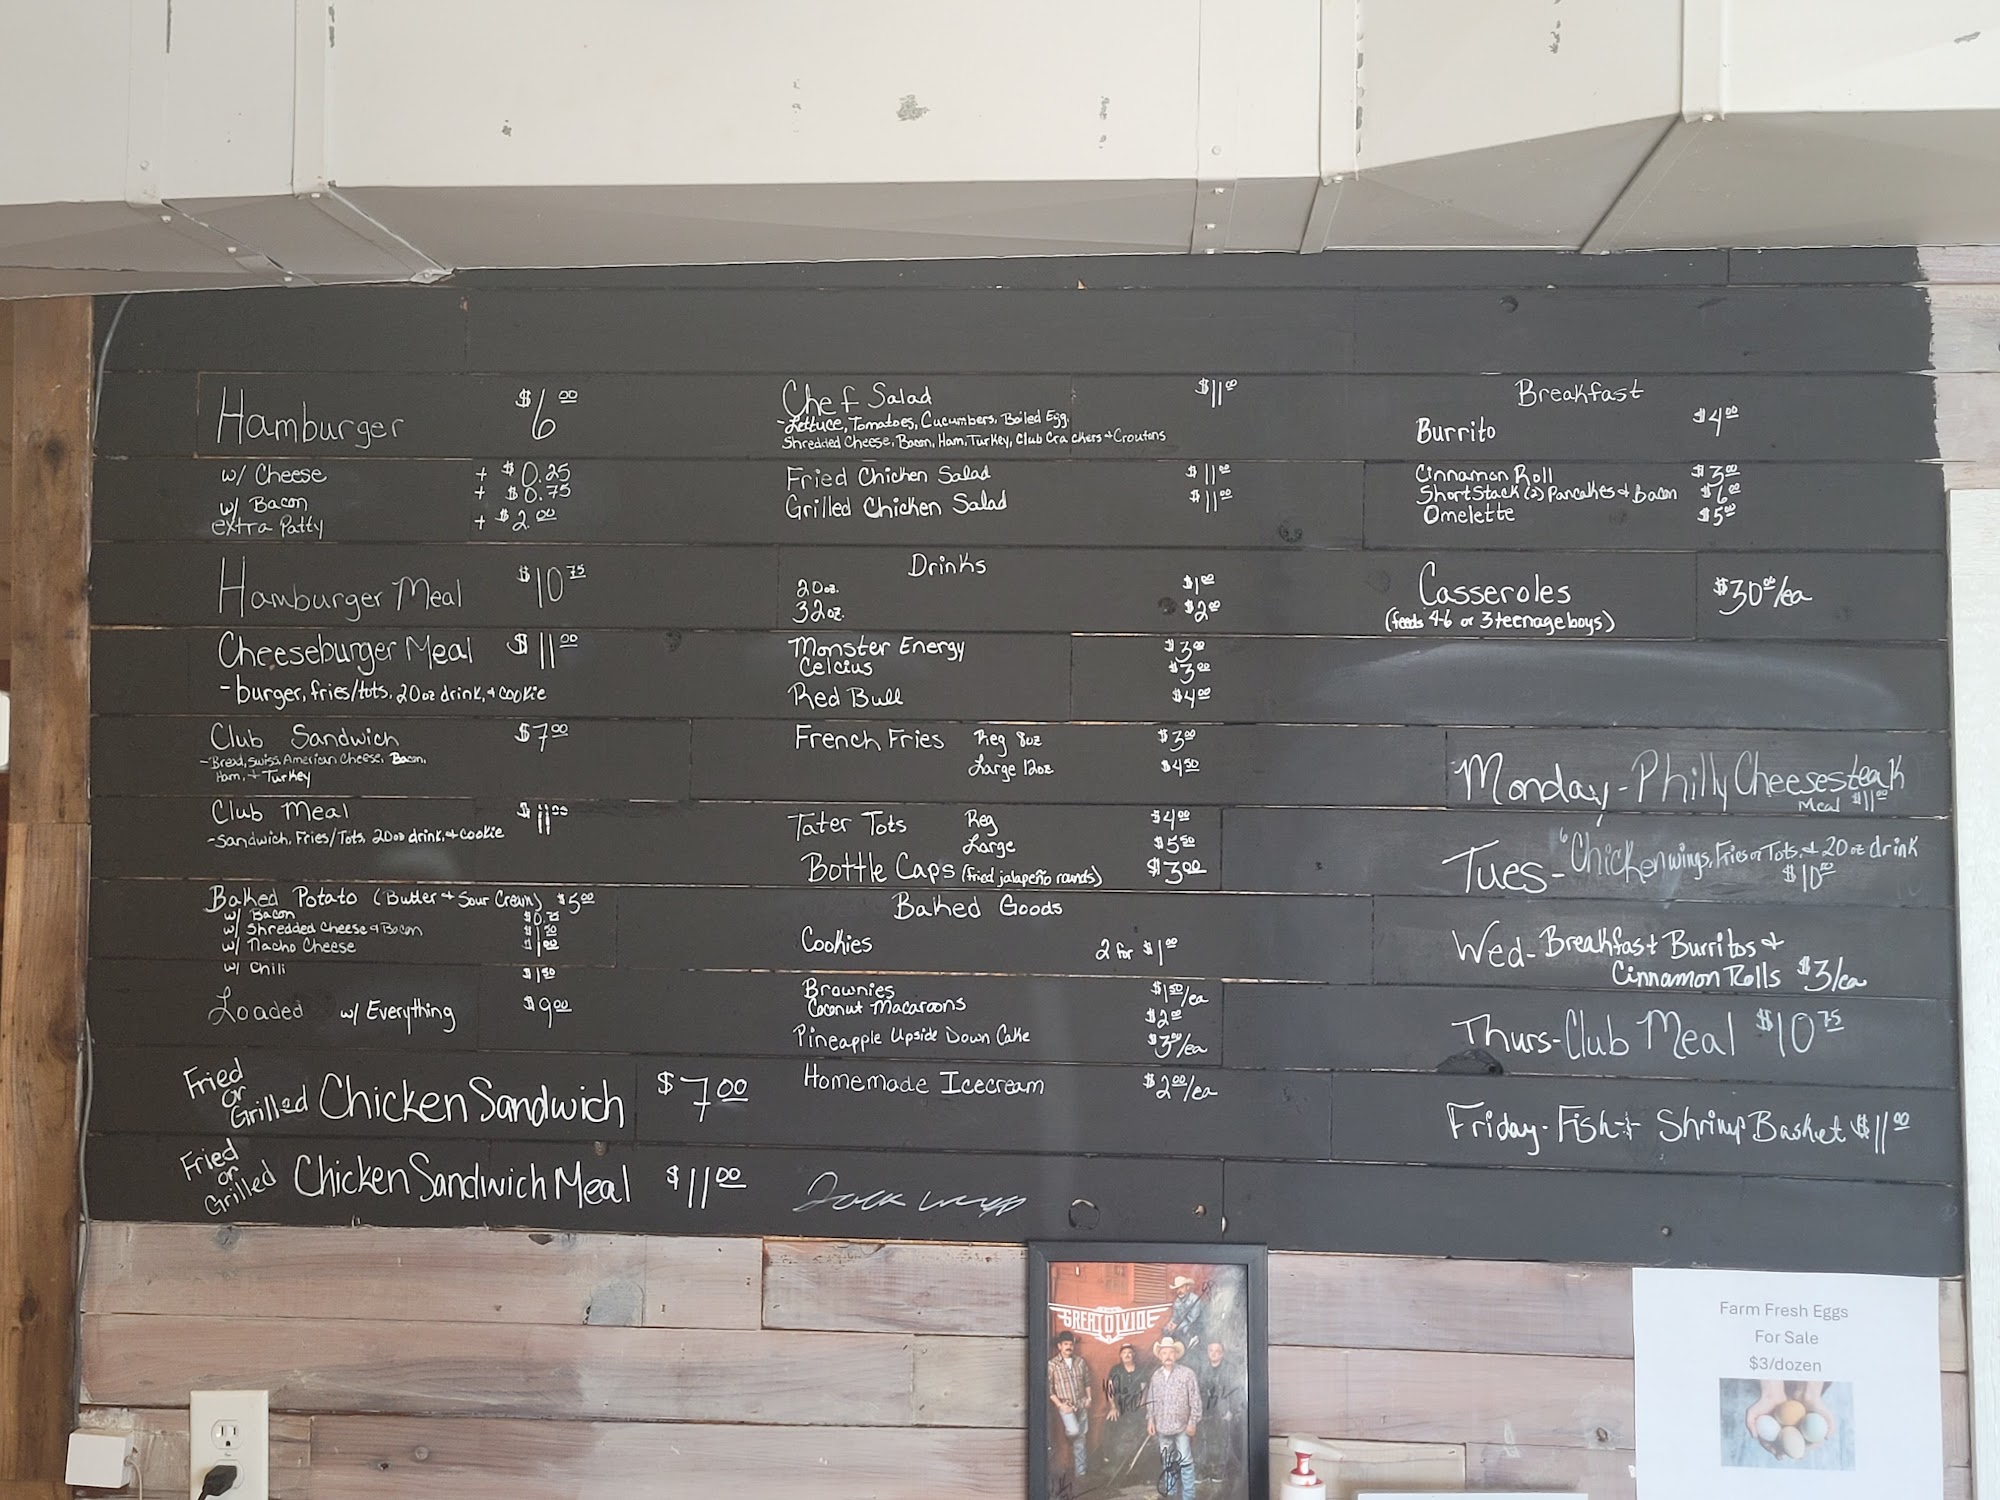 Hamburger $6.00
w/ Cheese + $0.25
w/ Bacon + $0.75
extra Patty + $2.00
Hamburger Meal $10.75
Cheeseburger Meal $11.00
- burger, fries/tots, 20oz drink, + cookie
Club Sandwich $7.00
- Bread, Swiss, American Cheese, Bacon,
Ham, + Turkey
Club Meal $11.00
- Sandwich, Fries/Tots, 20oz drink, + cookie
Baked Potato (Butter + Sour Cream) $5.00
w/ Bacon $0.75
w/ Shredded Cheese + Bacon $1.50
w/ Nacho Cheese $1.00
w/ Chili $1.50
Loaded w/ Everything $9.00
Fried
or
Grilled Chicken Sandwich $7.00
Fried
or
Grilled Chicken Sandwich Meal $11.00
Chef Salad $11.00
- Lettuce, Tomatoes, Cucumbers, Boiled Egg,
Shredded Cheese, Bacon, Ham, Turkey, Club Crackers + Croutons
Fried Chicken Salad $11.00
Grilled Chicken Salad $11.00
Drinks
20oz. $1.00
32oz. $2.00
Monster Energy $3.00
Celcius $3.00
Red Bull $4.00
French Fries Reg 8oz $3.00
Large 12oz $4.50
Tater Tots Reg $4.00
Large $5.50
Bottle Caps (fried jalapeño rounds) $3.00
Baked Goods
Cookies 2 for $1.00
Brownies $1.50/ea
Coconut Macaroons $2.00
Pineapple Upside Down Cake $3.00/ea
Homemade Icecream $2.00/ea
Breakfast
Burrito $4.00
Cinnamon Roll $3.00
Short Stack (2) Pancakes + Bacon $6.00
Omelette $5.00
Casseroles $30.00/ea
(feeds 4-6 or 3 teenage boys)
Monday - Philly Cheesesteak
Meal $11.00
Tues - 6 Chicken wings, Fries or Tots, + 20 oz drink
$10.00
Wed - Breakfast Burritos +
Cinnamon Rolls $3/ea
Thurs - Club Meal $10.75
Friday - Fish + Shrimp Basket $11.00
THE
GREAT DIVIDE
Farm Fresh Eggs
For Sale
$3/dozen